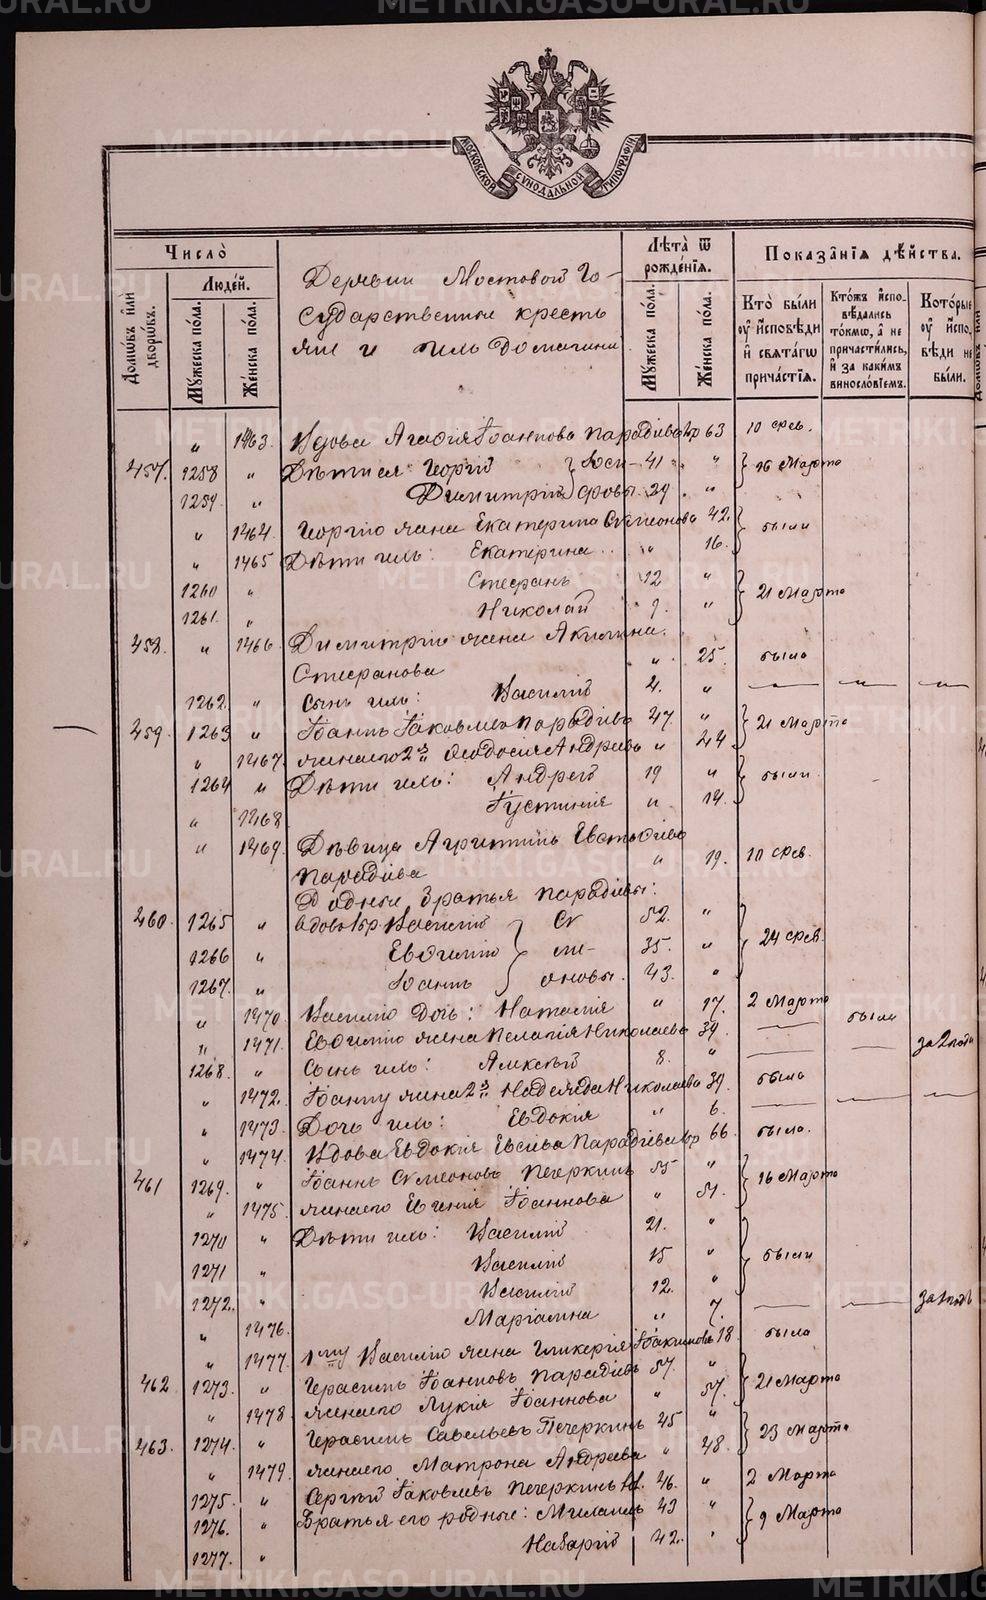 METRIKI.GASO-URAL.RU
МОСКОВСКОЙ СѴНОДАЛЬНОЙ ТИПОГРАФІИ
Число̀
Домѡвъ и҆лѝ дворѡ́въ.
Люде́й.
Мꙋ́жеска по́ла.
Же́нска по́ла.
Деревни Мостовой Го-
сударственные кресть
яне и ихъ домашніи
Лѣта̀ ѿ рожде́нїѧ.
Мꙋ́жеска по́ла.
Же́нска по́ла.
Показа̑нїѧ дѣ́йства.
Кто̀ бы́ли ᲂу҆ и҆́сповѣди и҆ свѧта́гѡ прича́стїѧ.
Кто́жъ и҆спо-вѣ́дались то́кмѡ, а҆ не причасти́лись, и҆ за каки́мъ виносло́вїемъ.
Кото́рые ᲂу҆ и҆спо́-вѣди не бы́ли.
„ 1463. Вдова Агафія Іоаннова Парадіева 63 10 фев.
457. 1258 „ Дѣти ея: Георгій Іоси- 41 „ 16 Марта
1259. „ Димитрій фовы 29. „
„ 1464. Георгію жена Екатерина Симеонова 42. были
„ 1465 Дѣти ихъ: Екатерина „ 16.
1260 „ Стефанъ 12 „ 21 Марта
1261. „ Николай 9. „
458. „ 1466 Димитрію жена Акилина
Стефанова „ 25. была
1262. „ Сынъ ихъ: Василій 2. „
459. 1263 „ Іоаннъ Іаковлевъ Парадіевъ 47. „ 21 Марта
„ 1467. жена его 2я Ѳеодосія Андреева „ 44
1264 „ Дѣти ихъ: Андрей 19 „ были
„ 1468 Іустинія „ 14.
„ 1469. Дѣвица Агриппина Евстаѳіева
Парадіева „ 19. 10 фев.
Родные братья Парадіевы:
460. 1265 „ вдовъ Василій Си 52. „ 24 фев.
1266 „ Евѳимій ме- 35. „
1267. „ Іоаннъ оновы. 43. „
„ 1470. Василію дочь: Наталія „ 17. 2 Марта
„ 1471. Евѳимію жена Пелагія Николаева 39. были за 2 года
1268. „ Сынъ ихъ: Алексѣй 8. „
„ 1472. Іоанну жена 2я Надежда Николаева 39. была
„ 1473. Дочь ихъ: Евдокія „ 6.
„ 1474. Вдова Евдокія Евсеева Парадіева 66. была.
461 1269. „ Іоаннъ Симеоновъ Печеркинъ 55 „ 16 Марта
„ 1475. жена его Евгенія Іоаннова „ 51.
1270 „ Дѣти ихъ: Василій 21. „ были
1271 „ Василій 15 „
1272. „ Василій 12. „
„ 1476. Маріамна „ 7.
„ 1477. 1му Василію жена Гликерія Іоакимовъ 18. была
462 1273. „ Герасимъ Іоанновъ Парадіевъ 57. „ 21 Марта
„ 1478. жена его Лукія Іоаннова „ 57.
463. 1274. „ Герасимъ Савельевъ Печеркинъ 45 „ 23 Марта
„ 1479. жена его Матрона Андреева „ 48.
1275. „ Сергѣй Іаковлевъ Печеркинъ 46. „ 2 Марта
1276. „ Братья его родные: Михаилъ 43 „ 9 Марта
1277. „ Назарій 42. „